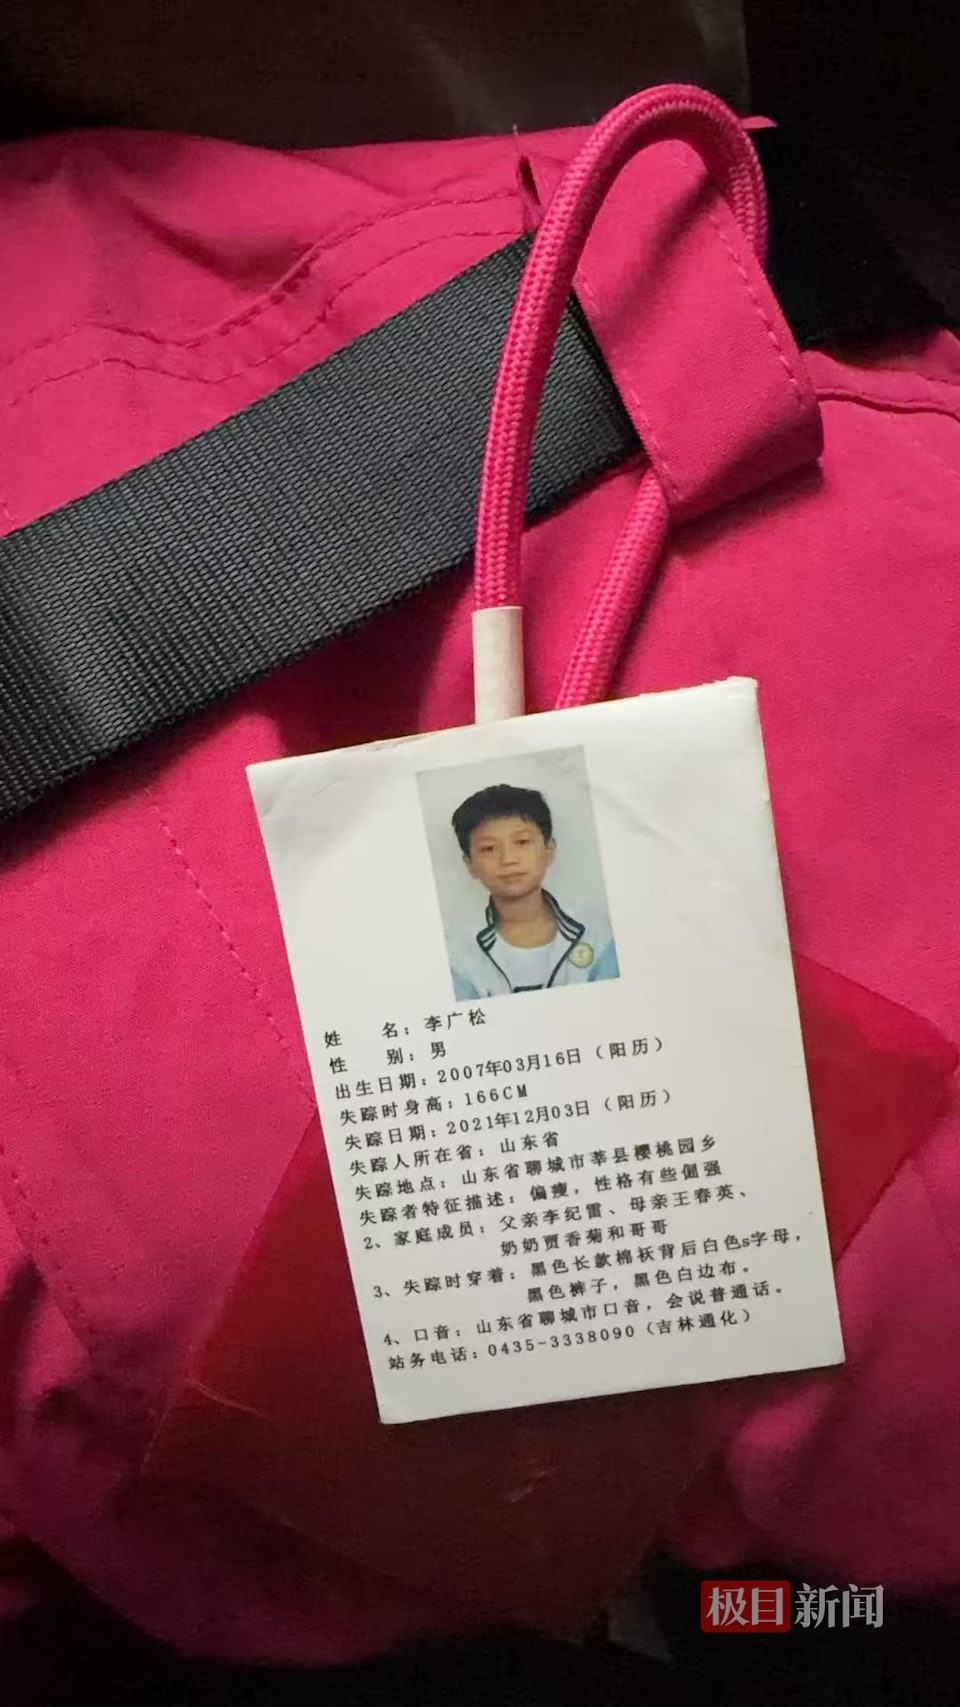 姓 名：李广松
性 别：男
出生日期：2007年03月16日（阳历）
失踪时身高：166CM
失踪日期：2021年12月03日（阳历）
失踪人所在省：山东省
失踪地点：山东省聊城市莘县樱桃园乡
失踪者特征描述：偏瘦，性格有些倔强
2、家庭成员：父亲李纪雷、母亲王春英、
奶奶贾香菊和哥哥
3、失踪时穿着：黑色长款棉袄背后白色s字母，
黑色裤子，黑色白边布。
4、口音：山东省聊城市口音，会说普通话。
站务电话：0435-3338090（吉林通化）
极目新闻